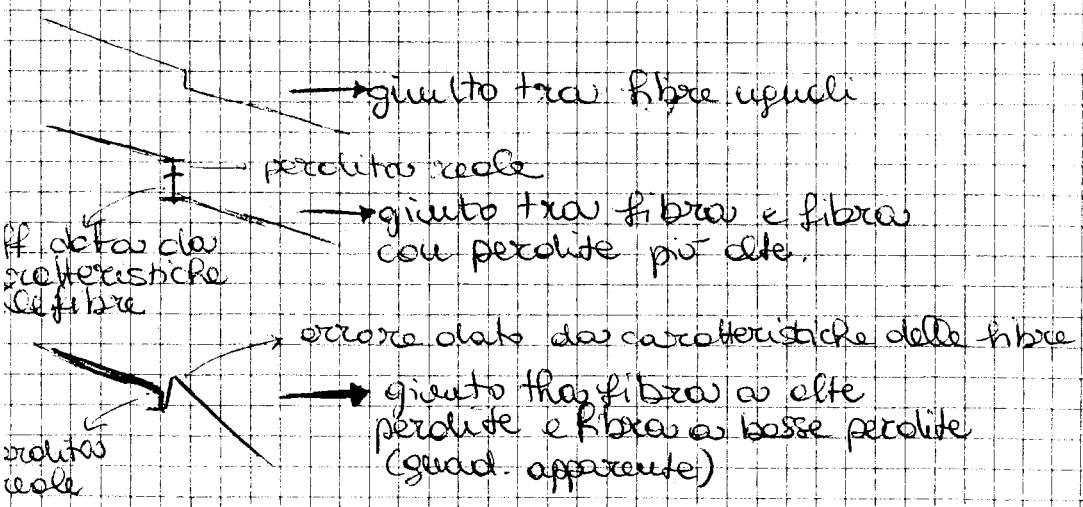 giunto tra fibre uguali
perdita reale
giunto tra fibra e fibra
con perdite più alte.
ff data da
ratteristiche
lle fibre
errore dato da caratteristiche delle fibre
giunto tra fibra a alte
perdite e fibra a basse perdite
(guad. apparente)
erdita
reale